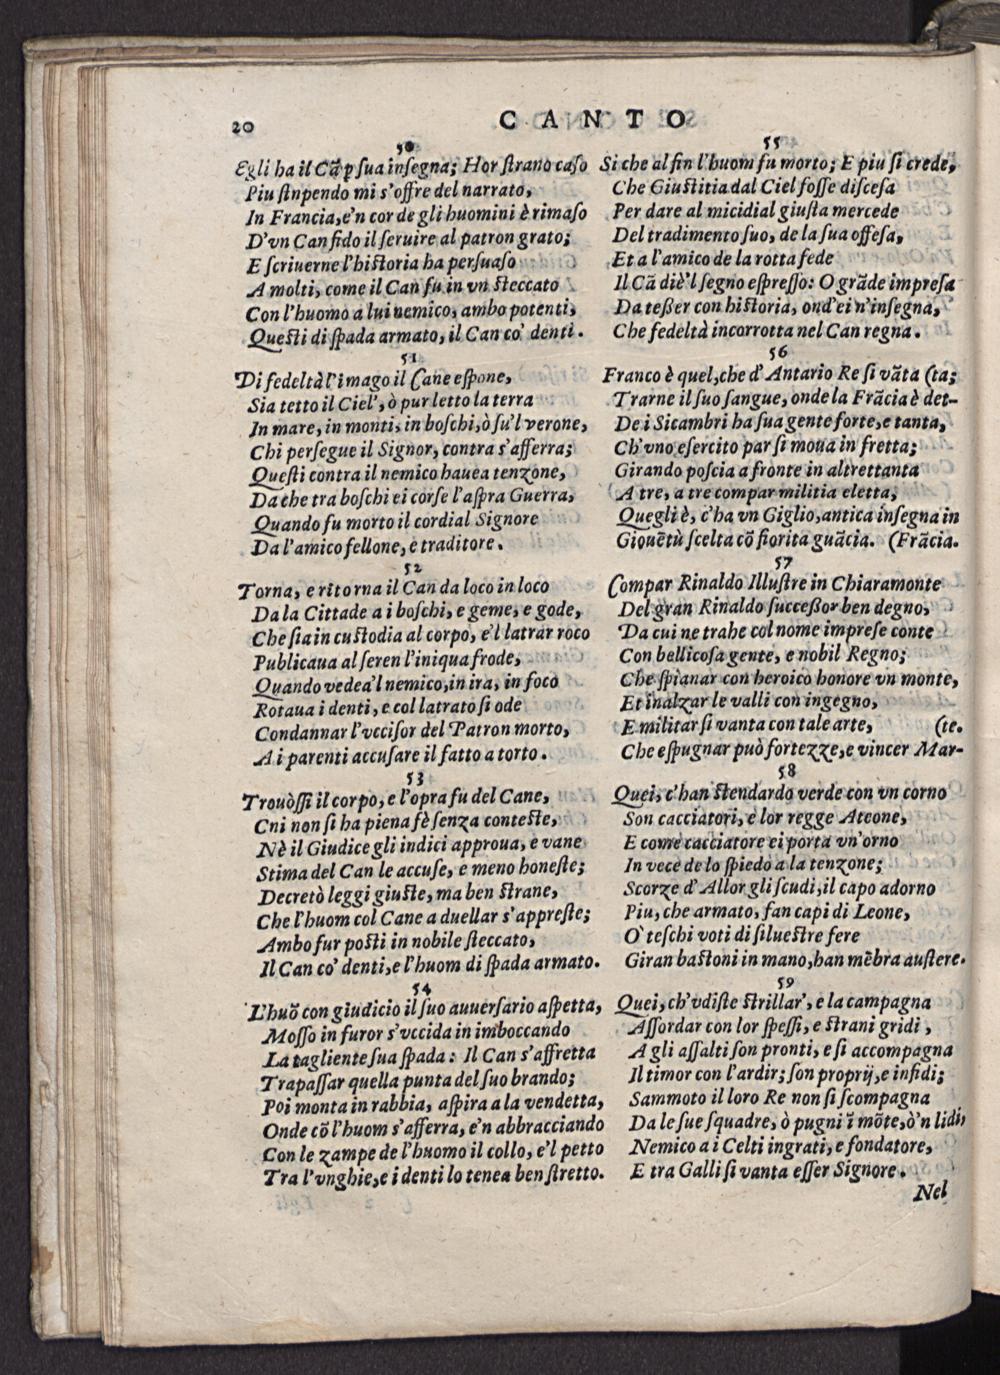 20
CANTO
50
Egli ha il Cã p sua insegna; Hor strano caso
Piu stnpendo mi s'offre del narrato,
In Francia, e'n cor de gli huomini è rimaso
D'vn Can fido il seruire al patron grato;
E scriuerne l'historia ha persuaso
A molti, come il Can fu in vn steccato
Con l'huomo a lui nemico, ambo potenti,
Questi di spada armato, il Can co' denti.
51
Di fedeltà l'imago il Cane espone,
Sia tetto il Ciel', ò pur letto la terra
In mare, in monti, in boschi, ò su'l verone,
Chi persegue il Signor, contra s'afferra;
Questi contra il nemico hauea tenzone,
Da che tra boschi ei corse l'aspra Guerra,
Quando fu morto il cordial Signore
Da l'amico fellone, e traditore.
52
Torna, e ritorna il Can da loco in loco
Da la Cittade a i boschi, e geme, e gode,
Che sia in custodia al corpo, e'l latrar roco
Publicaua al seren l'iniqua frode;
Quando vedea'l nemico, in ira, in foco
Rotaua i denti, e col latrato si ode
Condannar l'vccisor del Patron morto,
A i parenti accusare il fatto a torto.
53
Trouossi il corpo, e l'opra fu del Cane,
Cni non si ha piena fè senza conteste,
Nè il Giudice gli indici approua, e vane
Stima del Can le accuse, e meno honeste;
Decretò leggi giuste, ma ben strane,
Che l'huom col Cane a duellar s'appreste;
Ambo fur posti in nobile steccato,
Il Can co' denti, e l'huom di spada armato.
54
L'huõ con giudicio il suo auuersario aspetta,
Mosso in furor s'vccida in imboccando
La tagliente sua spada: Il Can s'affretta
Trapassar quella punta del suo brando;
Poi monta in rabbia, aspira a la vendetta,
Onde cõ l'huom s'afferra, e'n abbracciando
Con le zampe de l'huomo il collo, e'l petto
Tra l'vnghie, e i denti lo tenea ben stretto.
55
Si che al fin l'huom fu morto; E piu si crede,
Che Giustitia dal Ciel fosse discesa
Per dare al micidial giusta mercede
Del tradimento suo, de la sua offesa,
Et a l'amico de la rotta fede
Il Cã diè'l segno espresso: O grãde impresa
Da tesser con historia, ond'ei n'insegna,
Che fedeltà incorrotta nel Can regna.
56
Franco è quel, che d'Antario Re si vãta (ta;
Trarne il suo sangue, onde la Frãcia è det-
De i Sicambri ha sua gente forte, e tanta,
Ch'vno esercito par si moua in fretta;
Girando poscia a fronte in altrettanta
A tre, a tre compar militia eletta,
Quegli è, c'ha vn Giglio, antica insegna in
Giouẽtù scelta cõ fiorita guãcia. (Frãcia.
57
Compar Rinaldo Illustre in Chiaramonte
Del gran Rinaldo successor ben degno,
Da cui ne trahe col nome imprese conte
Con bellicosa gente, e nobil Regno;
Che spianar con heroico honore vn monte,
Et inalzar le valli con ingegno,
E militar si vanta con tale arte, (te.
Che espugnar può fortezze, e vincer Mar-
58
Quei, c'han stendardo verde con vn corno
Son cacciatori, e lor regge Ateone,
E come cacciatore ei porta vn'orno
In vece de lo spiedo a la tenzone;
Scorze d'Allor gli scudi, il capo adorno
Piu, che armato, fan capi di Leone,
O' teschi voti di siluestre fere
Giran bastoni in mano, han mẽbra austere.
59
Quei, ch'vdiste strillar', e la campagna
Assordar con lor spessi, e strani gridi,
A gli assalti son pronti, e si accompagna
Il timor con l'ardir; son proprij, e infidi;
Sammoto il loro Re non si scompagna
Da le sue squadre, ò pugni ĩ mõte, ò'n lidi,
Nemico a i Celti ingrati, e fondatore,
E tra Galli si vanta esser Signore.
Nel